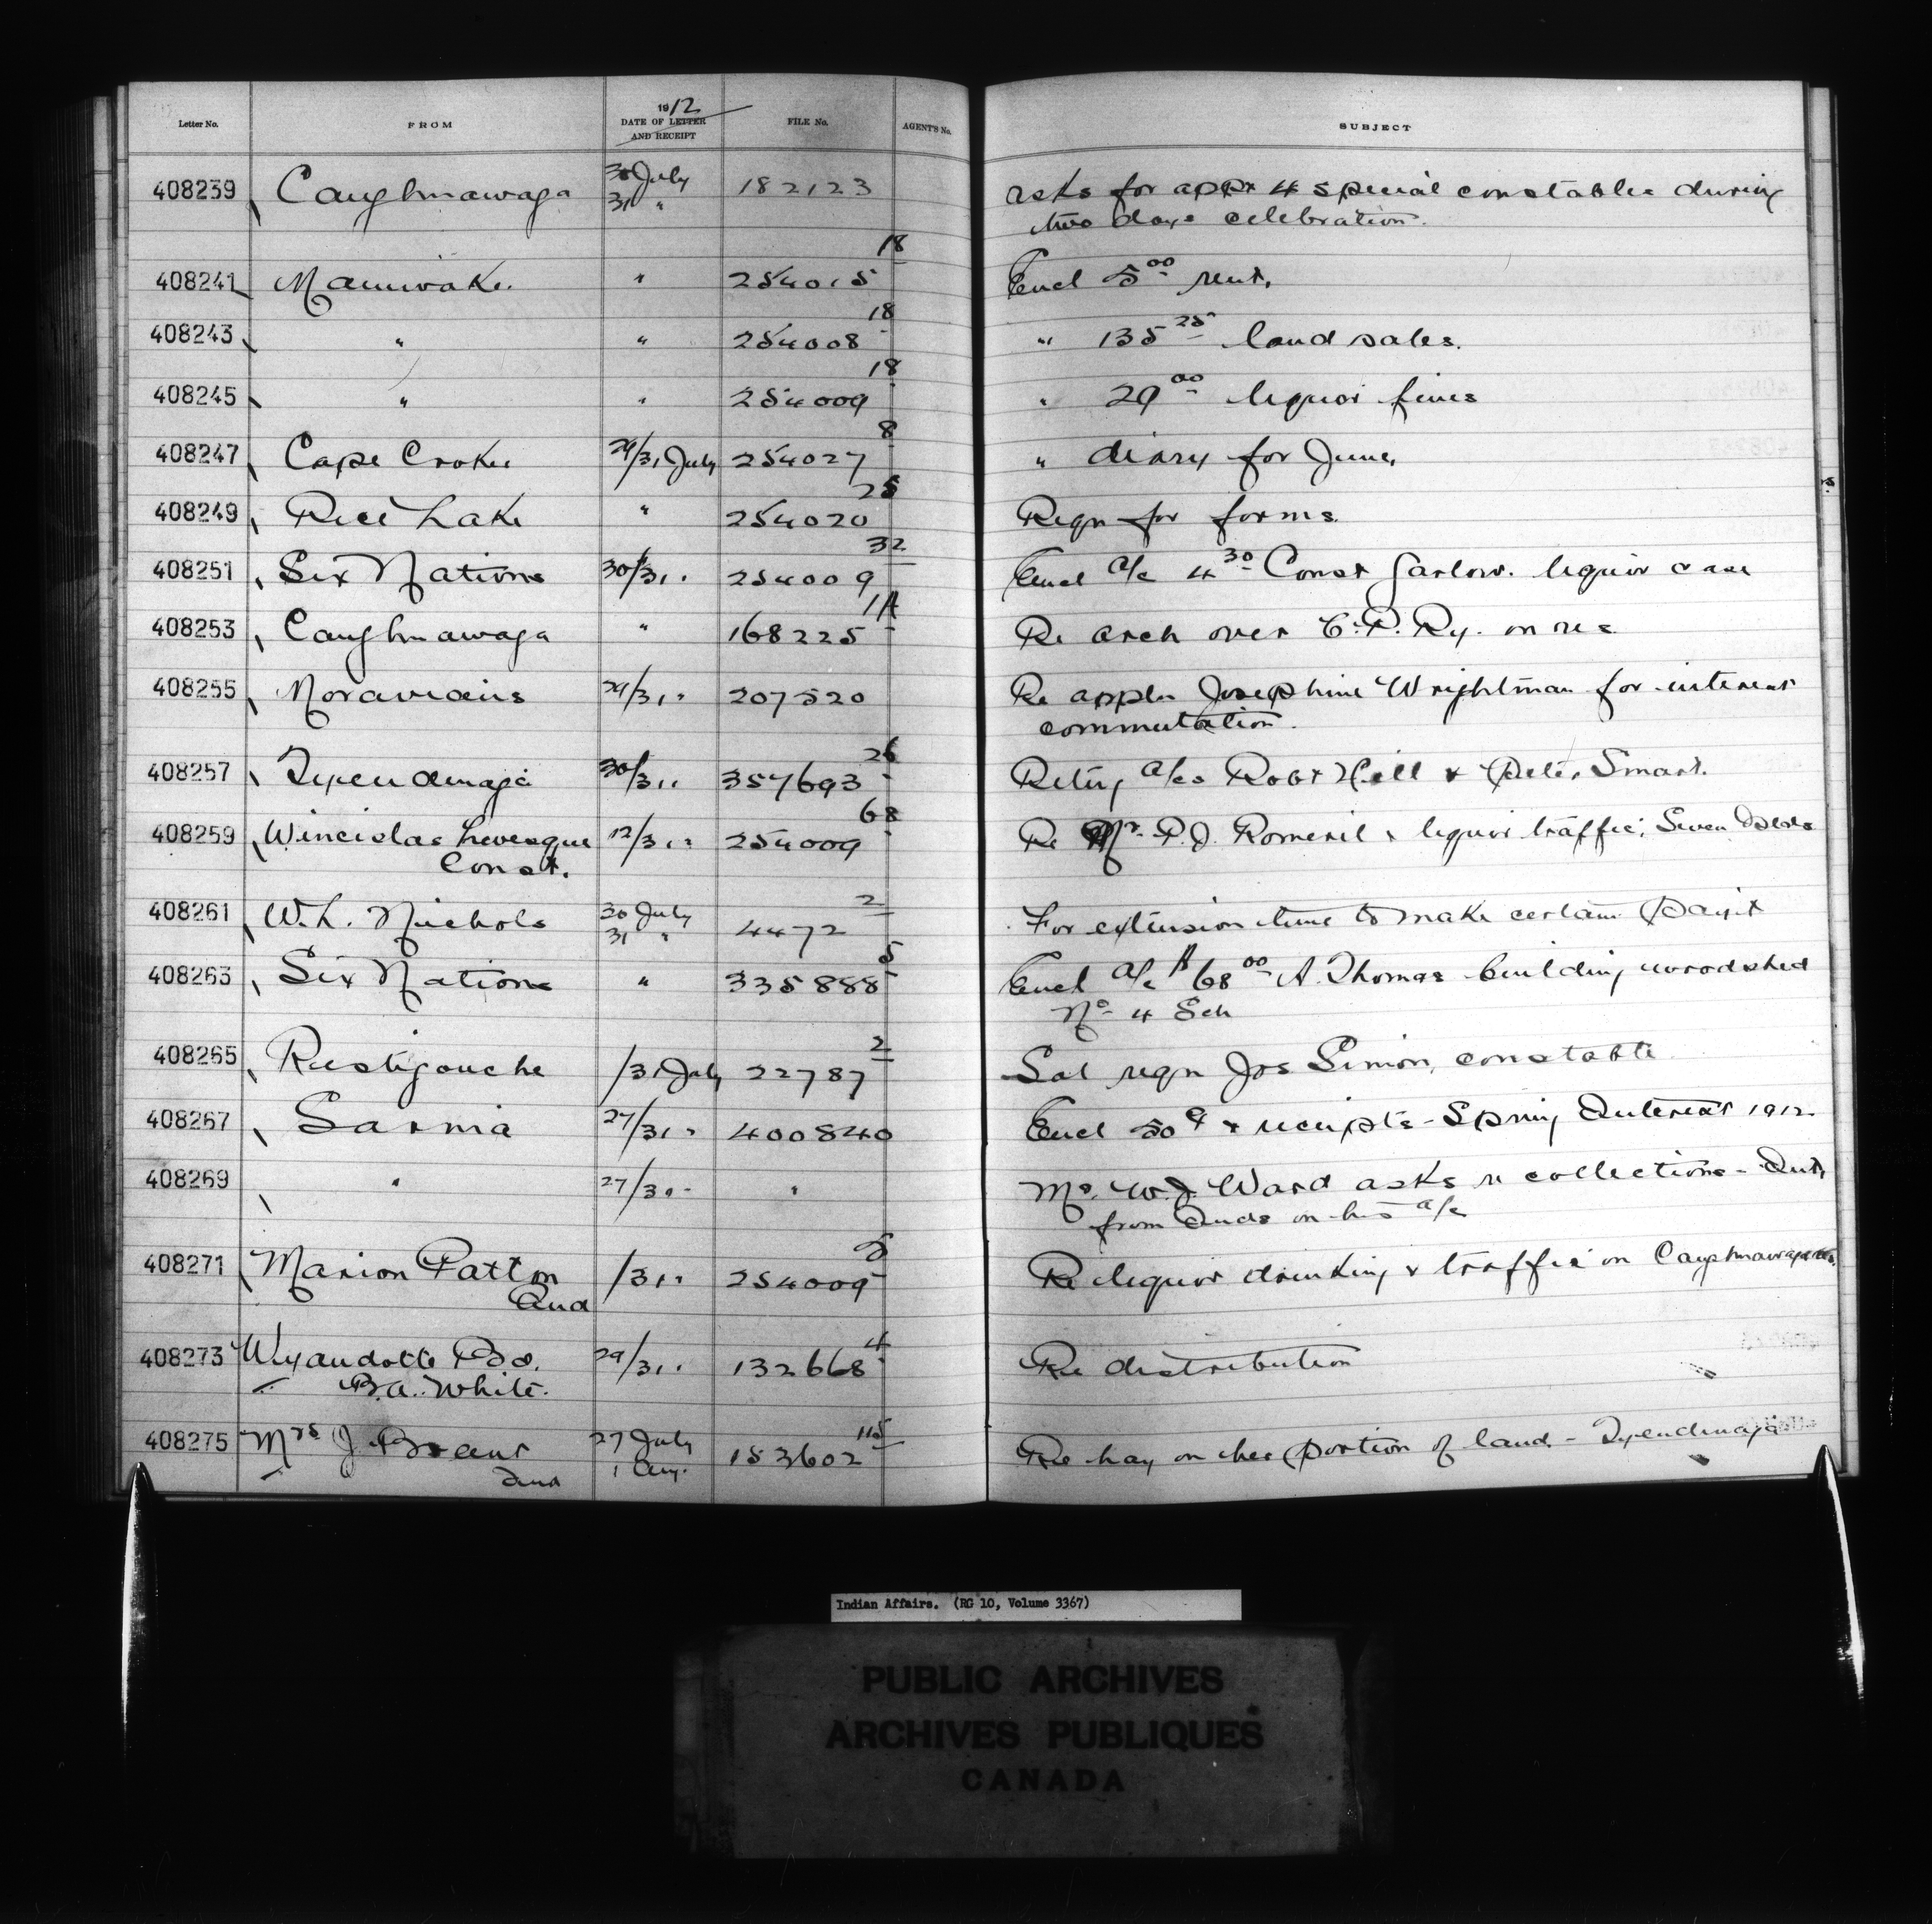 Letter No. FROM 1912 DATE OF LETTER AND RECEIPT FILE No. AGENT'S No. SUBJECT
408239 Caughnawaga 30 July 31 " 182123 asks for appt 4 special constables during
two days celebration.
408241 Maniwaki. " 254015 18 Encl 5 00 rent.
408243 " " 254008 18 " 135 25 land sales.
408245 " " 254009 18 " 29 00 liquor fines
408247 Cape Croker 29/31 July 254027 8 " diary for June,
408249 Rice Lake " 254020 25 Reqn for forms.
408251 Six Nations 30/31 " 254009 32 Encl a/c 4 30 Const Garlow. liquor case
408253 Caughnawaga " 168225 1A Re arch over C.P. Ry. on res
408255 Moravians 29/31 " 207520 Re appln Josephine Wrightman for interest
commutation.
408257 Tyendinaga 30/31 " 357693 26 Retng a/cs Robt Hill & Peter Smart.
408259 Winceslas Levesque 12/31 " 254009 68 Re Mr. P.J. Romeril & liquor traffic, Seven Islds
Const.
408261 W.L. Nichols 30 July 31 " 4472 2 For extension time to make certain paym't
408263 Six Nations " 335888 5 Encl a/c 68 00 A. Thomas building woodshed
No 4 Sch
408265 Restigouche /31 July 22787 2 Sal reqn Jos Simon, constable
408267 Sarnia 27/31 " 400840 Encl 50 ¢ & receipts - Spring Interest 1912
408269 " 27/31 " " Mr. W.J. Ward asks re collections - Int,
from Inds on his a/c
408271 Marion Patton /31 " 254009 5 Re liquor drinking & traffic on Caughnawaga res.
Ind
408273 Wyandotte Bd. 29/31 " 132668 4 Re distribution
B.A. White.
408275 Mrs J. Brant 27 July 1 Aug. 153602 115 Re hay on her portion of land - Tyendinaga
Ind
Indian Affairs. (RG 10, Volume 3367)
PUBLIC ARCHIVES
ARCHIVES PUBLIQUES
CANADA